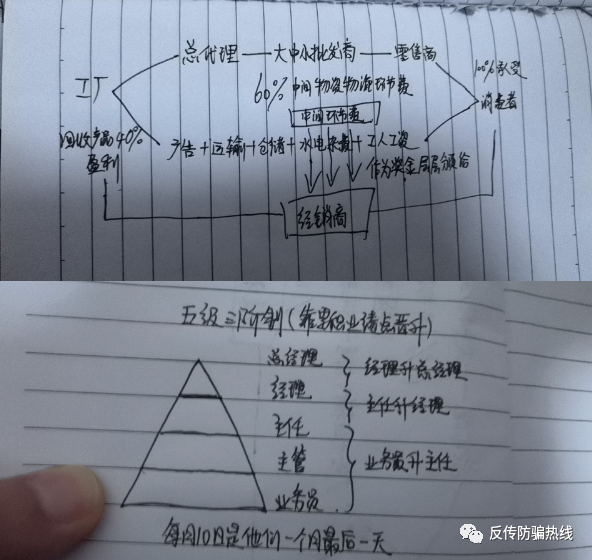 总代理 — 大中小批发商 — 零售商
工厂
60% 中间物资物流环节费
100%承受
消费者
中间环节费
回收产品40%
盈利
广告+运输+仓储+水电铁费+工人工资
作为奖金层层颁给
经销商
五级三阶制(靠累积业绩点晋升)
总经理
经理
主任
主管
业务员
经理升总经理
主任升经理
业务员升主任
每月10日是他们一个月最后一天
反传防骗热线